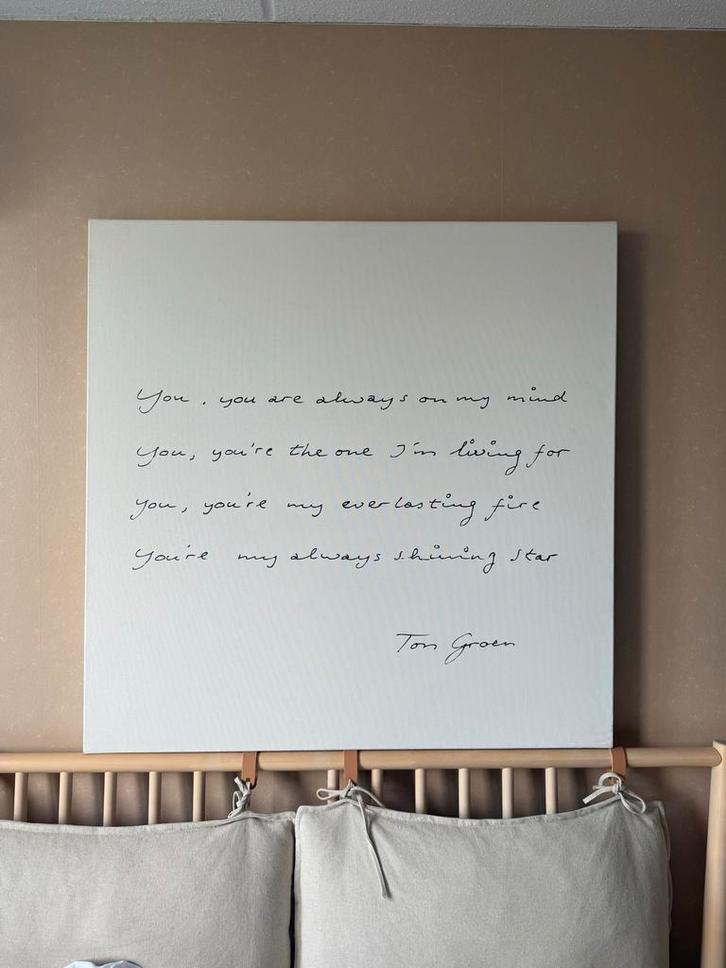 You, you are always on my mind
You, you're the one I'm living for
You, you're my everlasting fire
You're my always shining star
Tom Groen